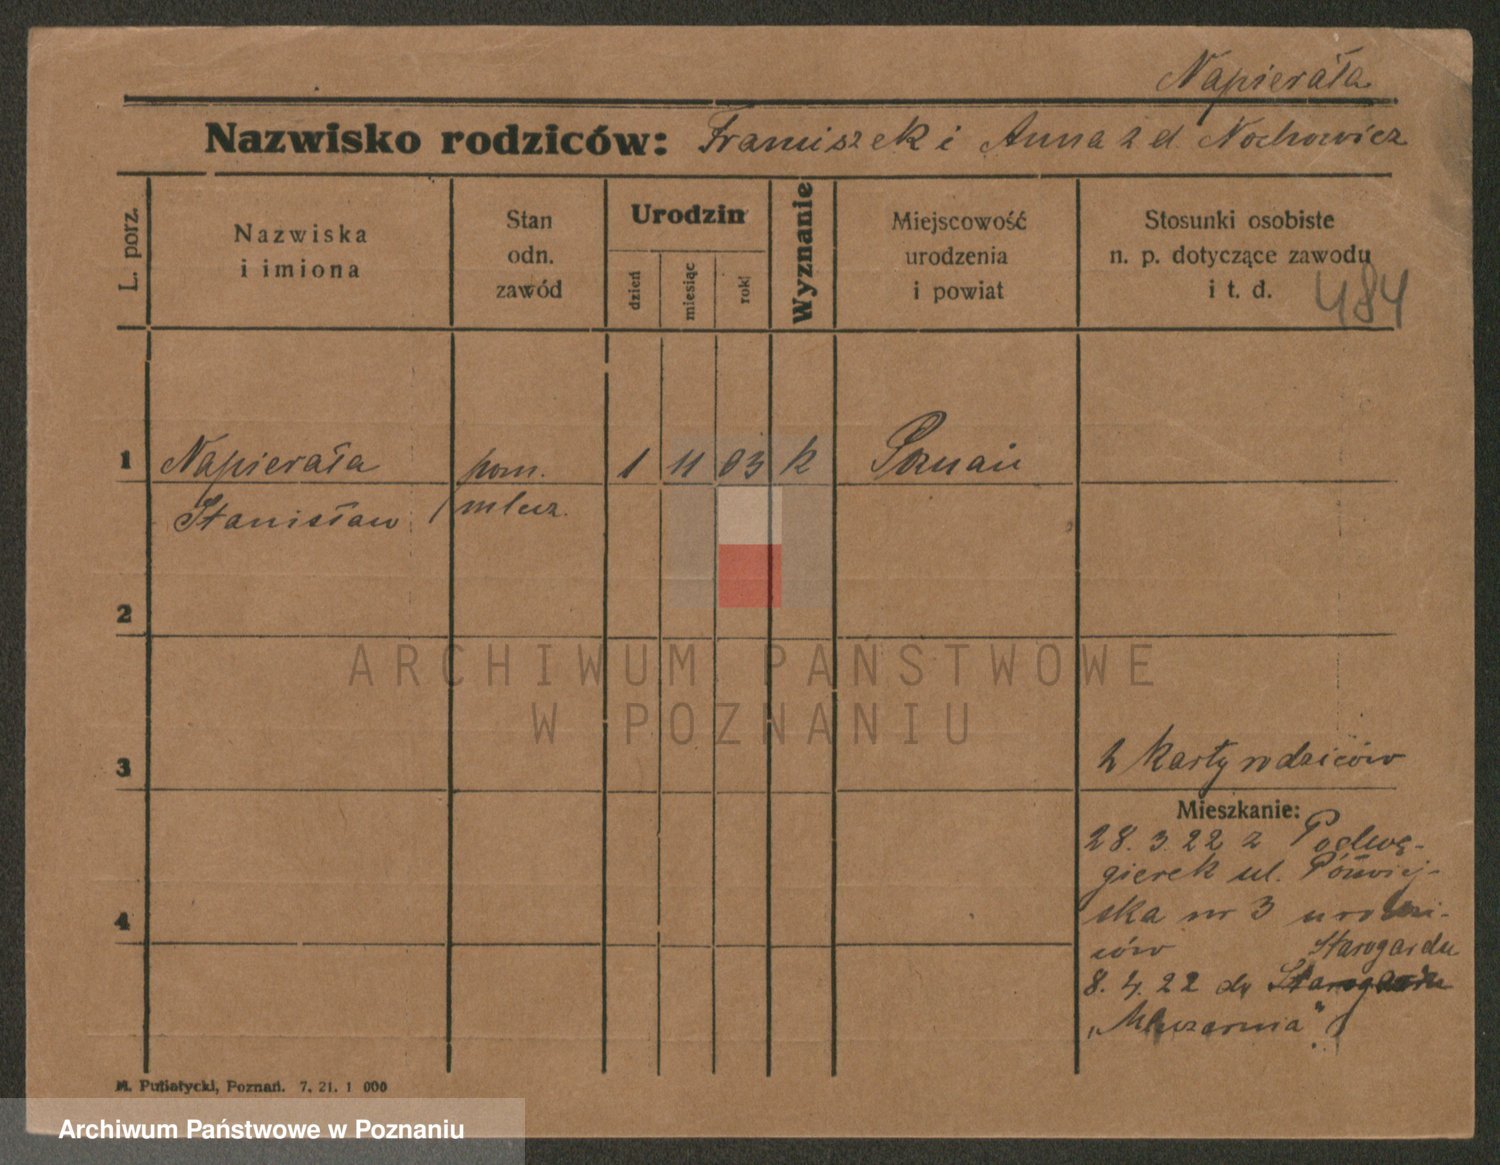 Napierała
Nazwisko rodziców: Franciszek i Anna z d. Nochowicz
L. porz.
Nazwiska
i imiona
Stan
odn.
zawód
Urodzin
dzień
miesiąc
rok
Wyznanie
Miejscowość
urodzenia
i powiat
Stosunki osobiste
n. p. dotyczące zawodu
i t. d.
484
1 Napierała pom. 1 11 03 k Poznań
Stanisław / mlecz.
2
ARCHIWUM PAŃSTWOWE
W POZNANIU
3
z karty rodziców
Mieszkanie:
28. 3. 22 z Podwę-
gierek ul. Półwiej-
ska nr 3 u rodzi-
4
ców Starogardu
8. 4. 22 do Starogardu
„Mleczarnia"
M. Putiatycki, Poznań. 7. 21. 1 000
Archiwum Państwowe w Poznaniu